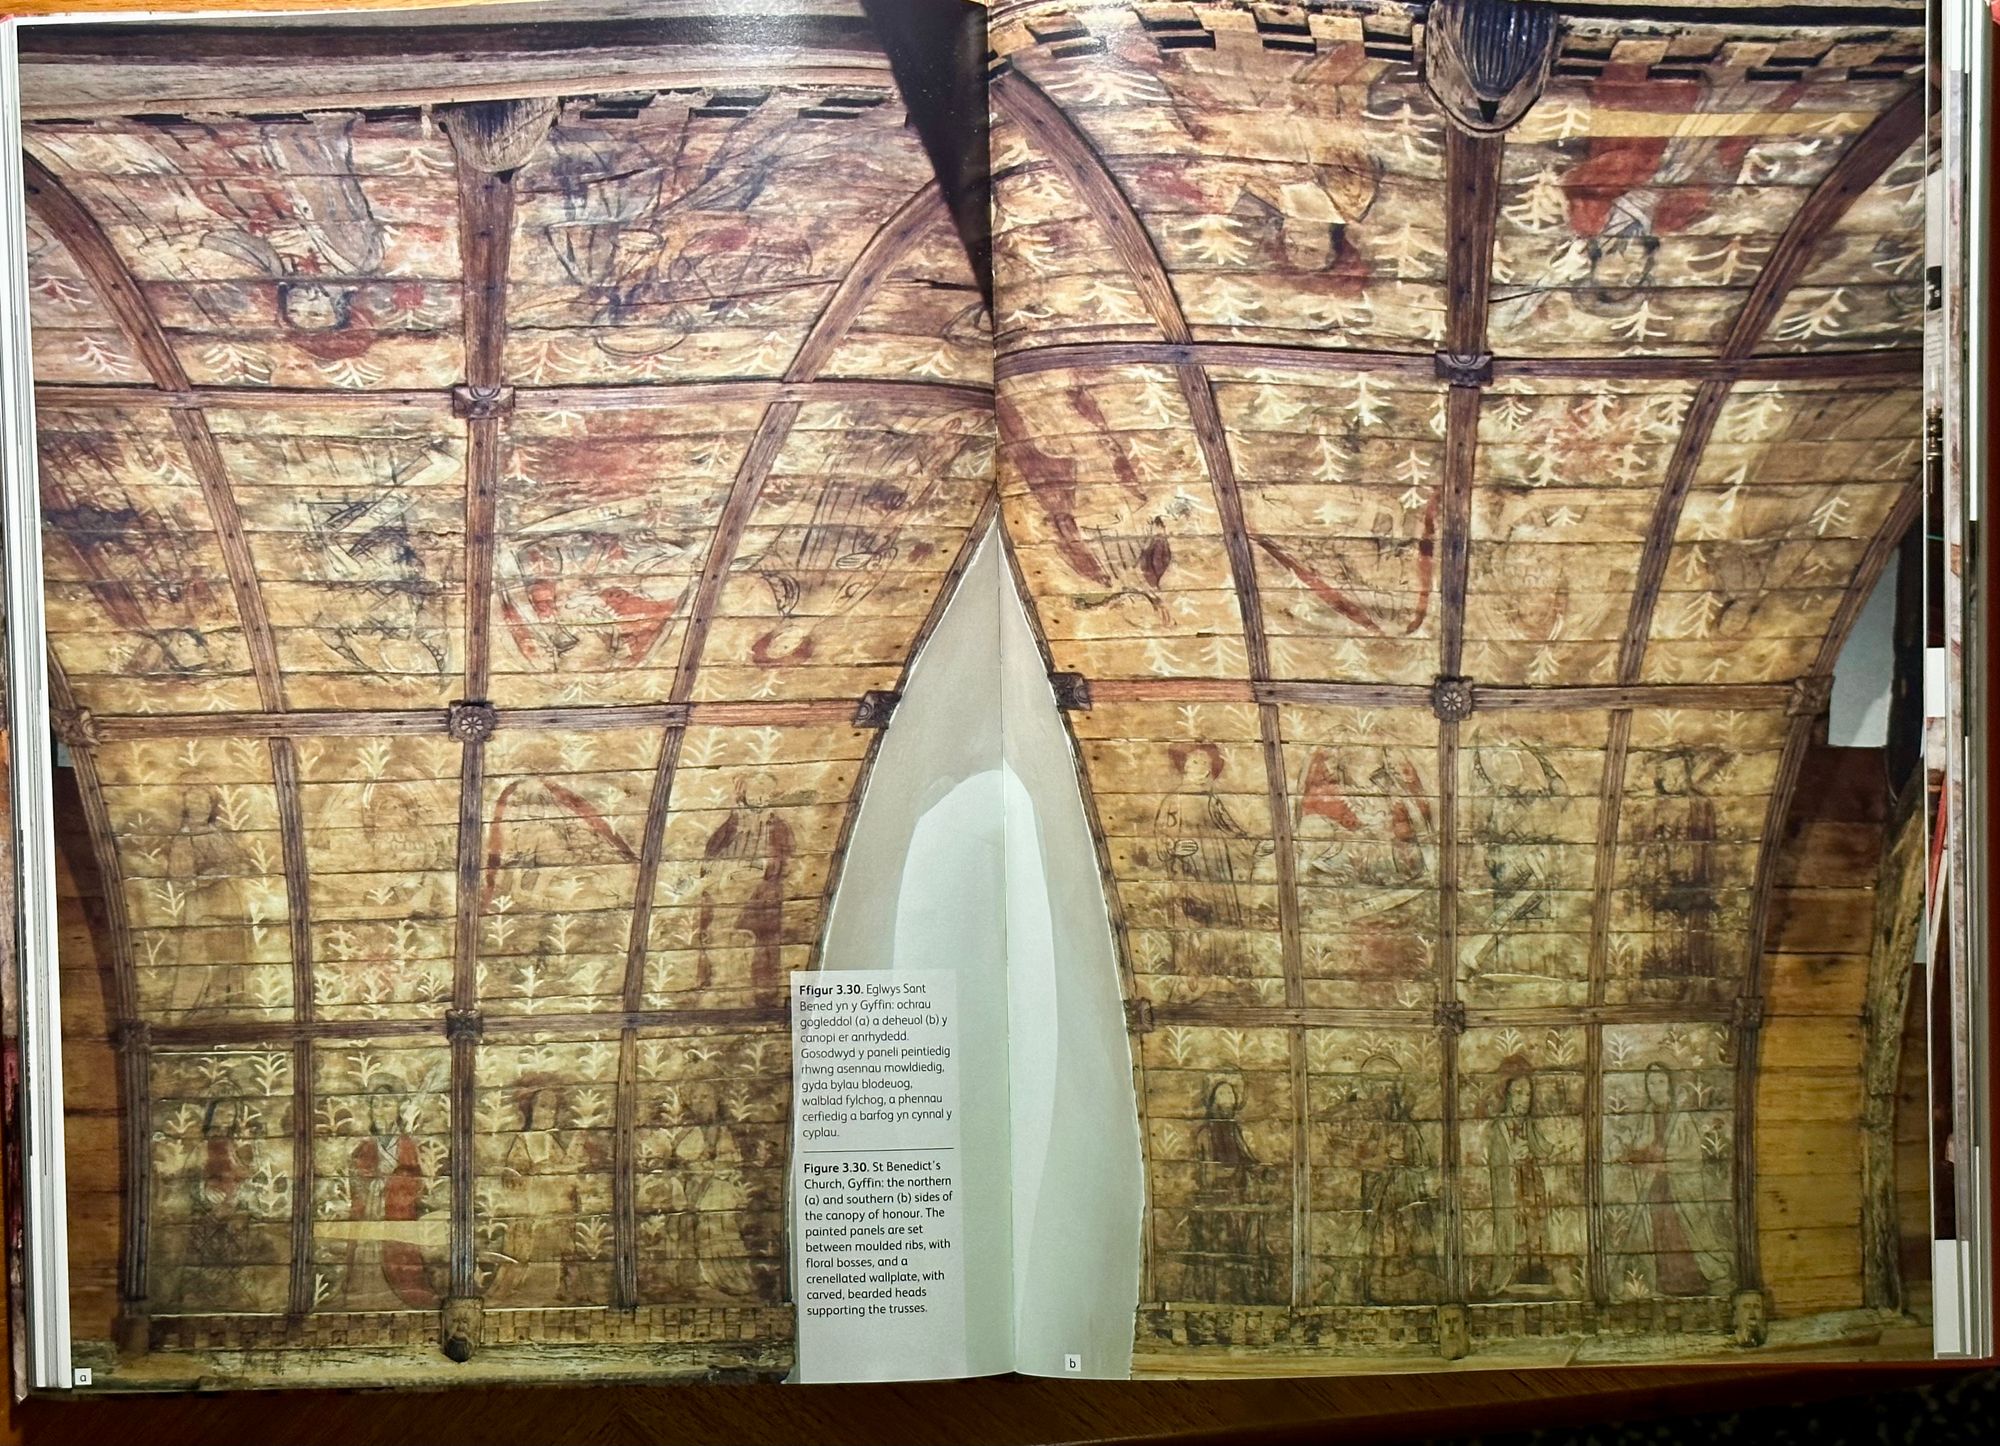 Ffigur 3.30. Eglwys Sant
Bened yn y Gyffin: ochrau
gogleddol (a) a deheuol (b) y
canopi er anrhydedd.
Gosodwyd y paneli peintiedig
rhwng asennau mowldiedig,
gyda bylau blodeuog,
walblad fylchog, a phennau
cerfiedig a barfog yn cynnal y
cyplau.
Figure 3.30. St Benedict's
Church, Gyffin: the northern
(a) and southern (b) sides of
the canopy of honour. The
painted panels are set
between moulded ribs, with
floral bosses, and a
crenellated wallplate, with
carved, bearded heads
supporting the trusses.
a
b